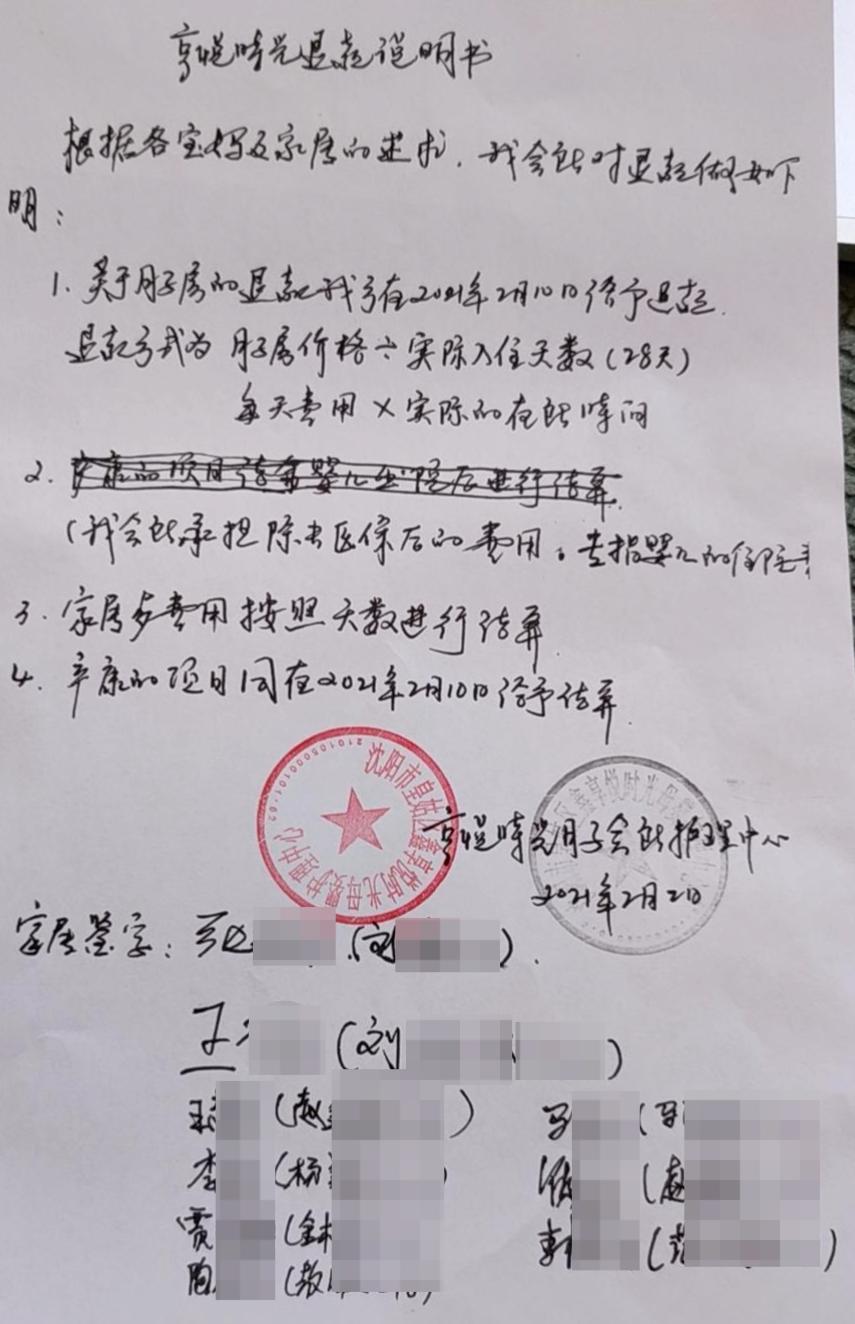 享悦時光退款说明书
根据各宝妈及家属的要求，我会所对退款做如下
明：
1. 关于月子房的退款我方在2021年2月10日给予退款.
退款方式为 月子房价格÷实际入住天数(28天)
每天费用×实际的在所時间
2. 产康的项目待婴儿出院后进行结算.
(我会所承担除去医保后的费用。专指婴儿的住院
3. 家属多费用按照天数进行结算.
4. 产康的项目同在2021年2月10日给予结算.
沈阳市皇姑区鑫享悦时光母婴护理中心
2101050000101-02
鑫享悦时光母婴
享悦時光月子会所护理中心
2021年2月2日
家属签字：
(刘
王 (刘
(赵
马
李 (杨
(赵
贾